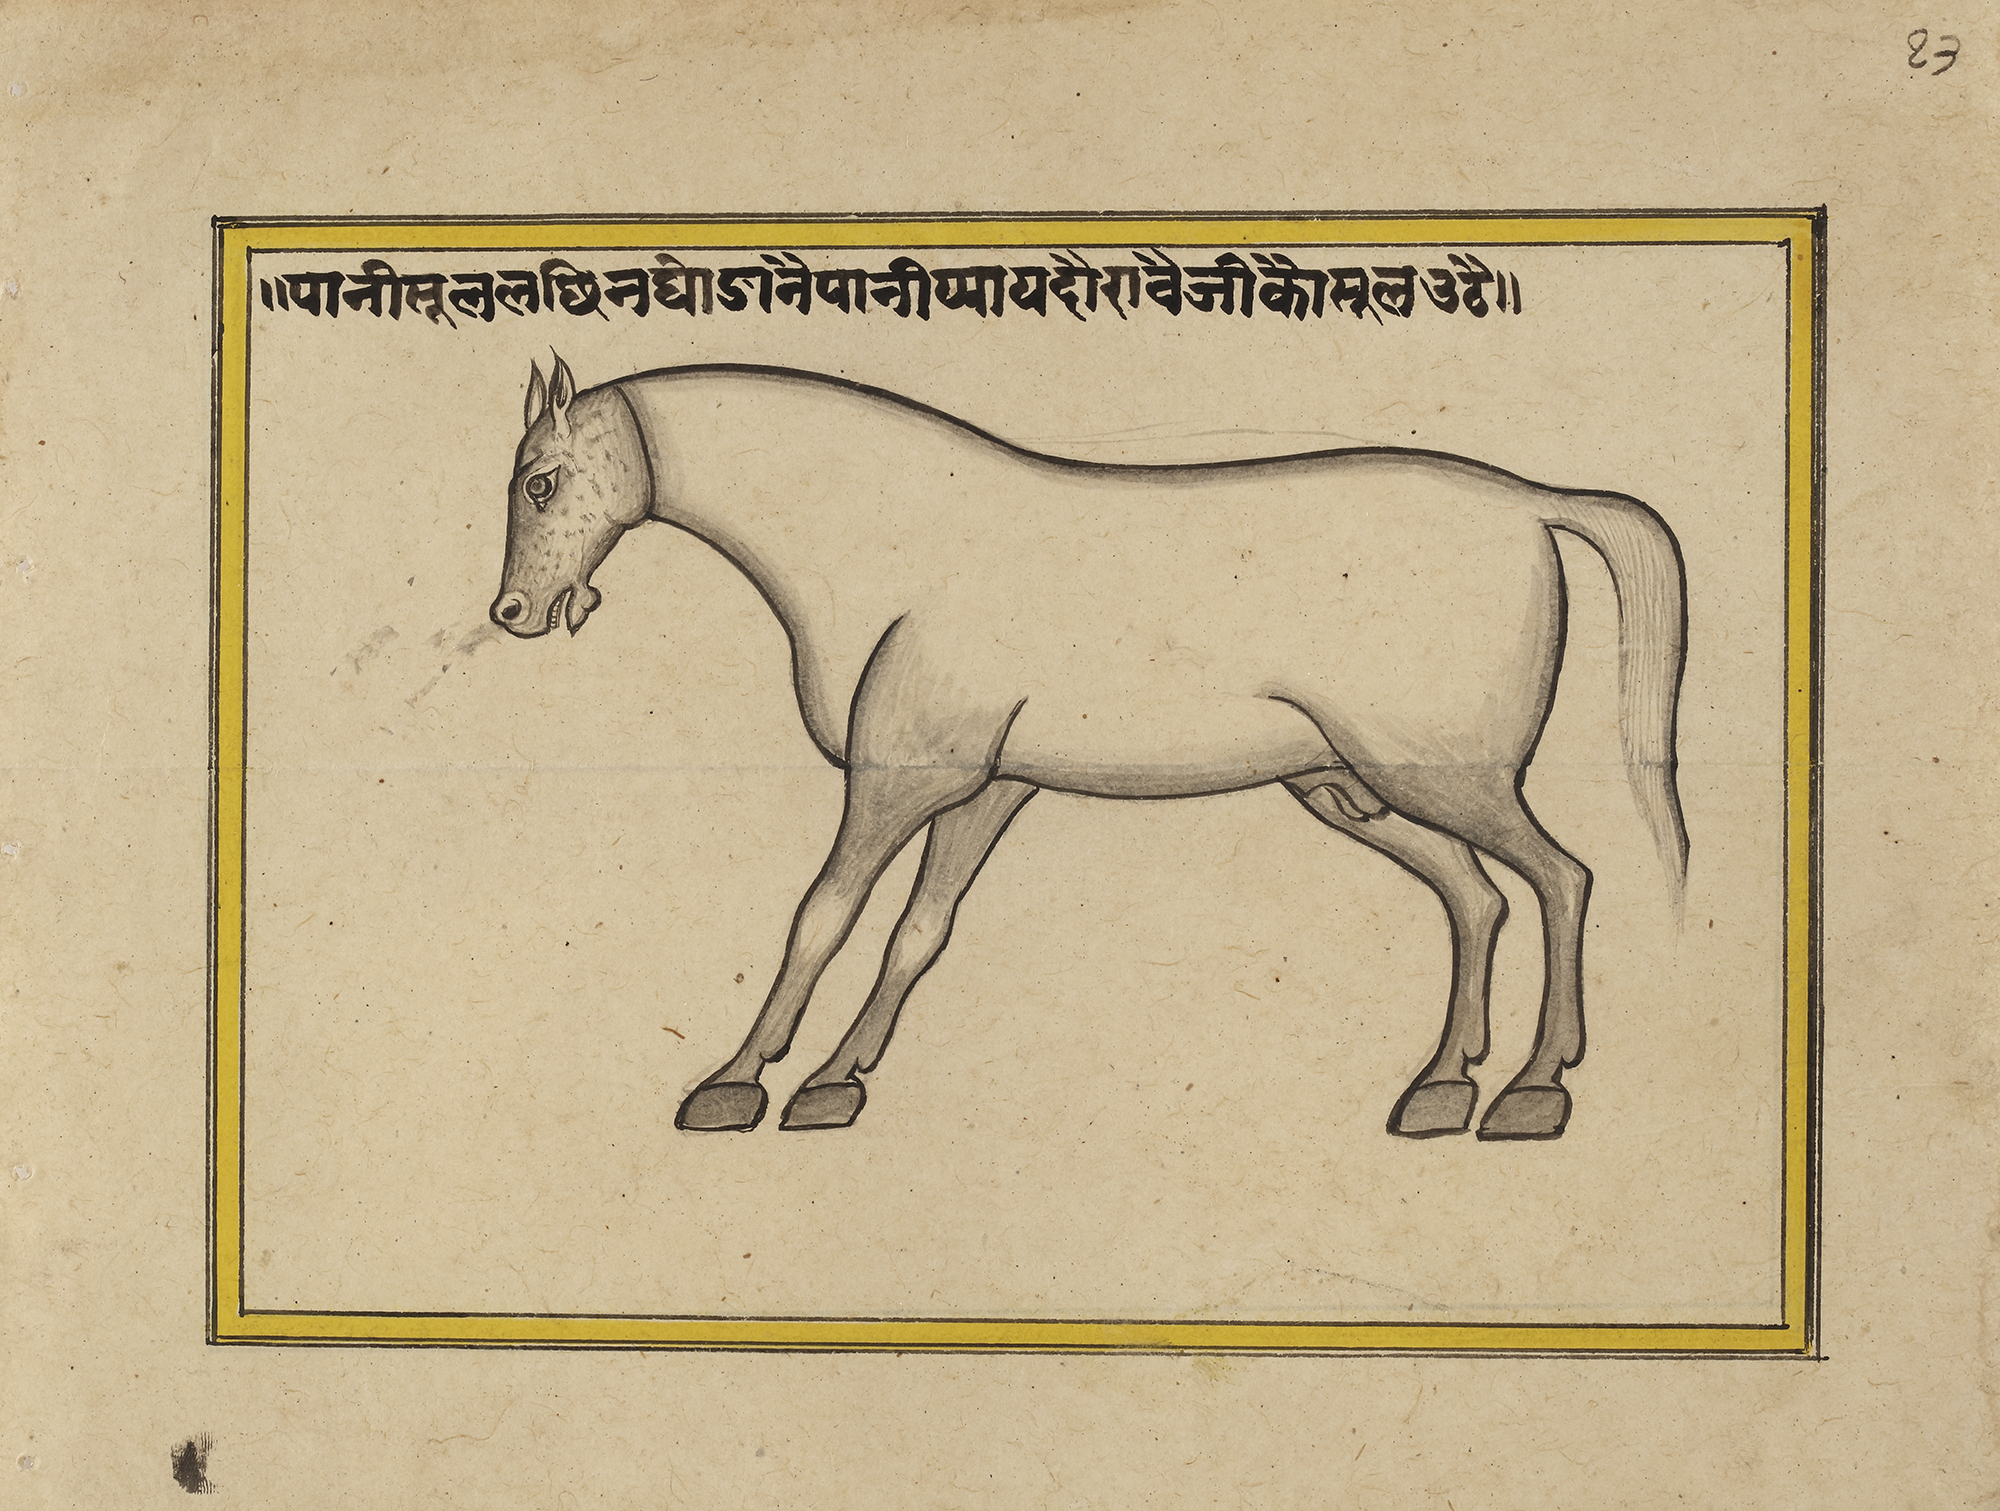 २३
॥पानीसूललछिनघोडानैपानीप्यायदौरावैजीकैासूलउठै॥